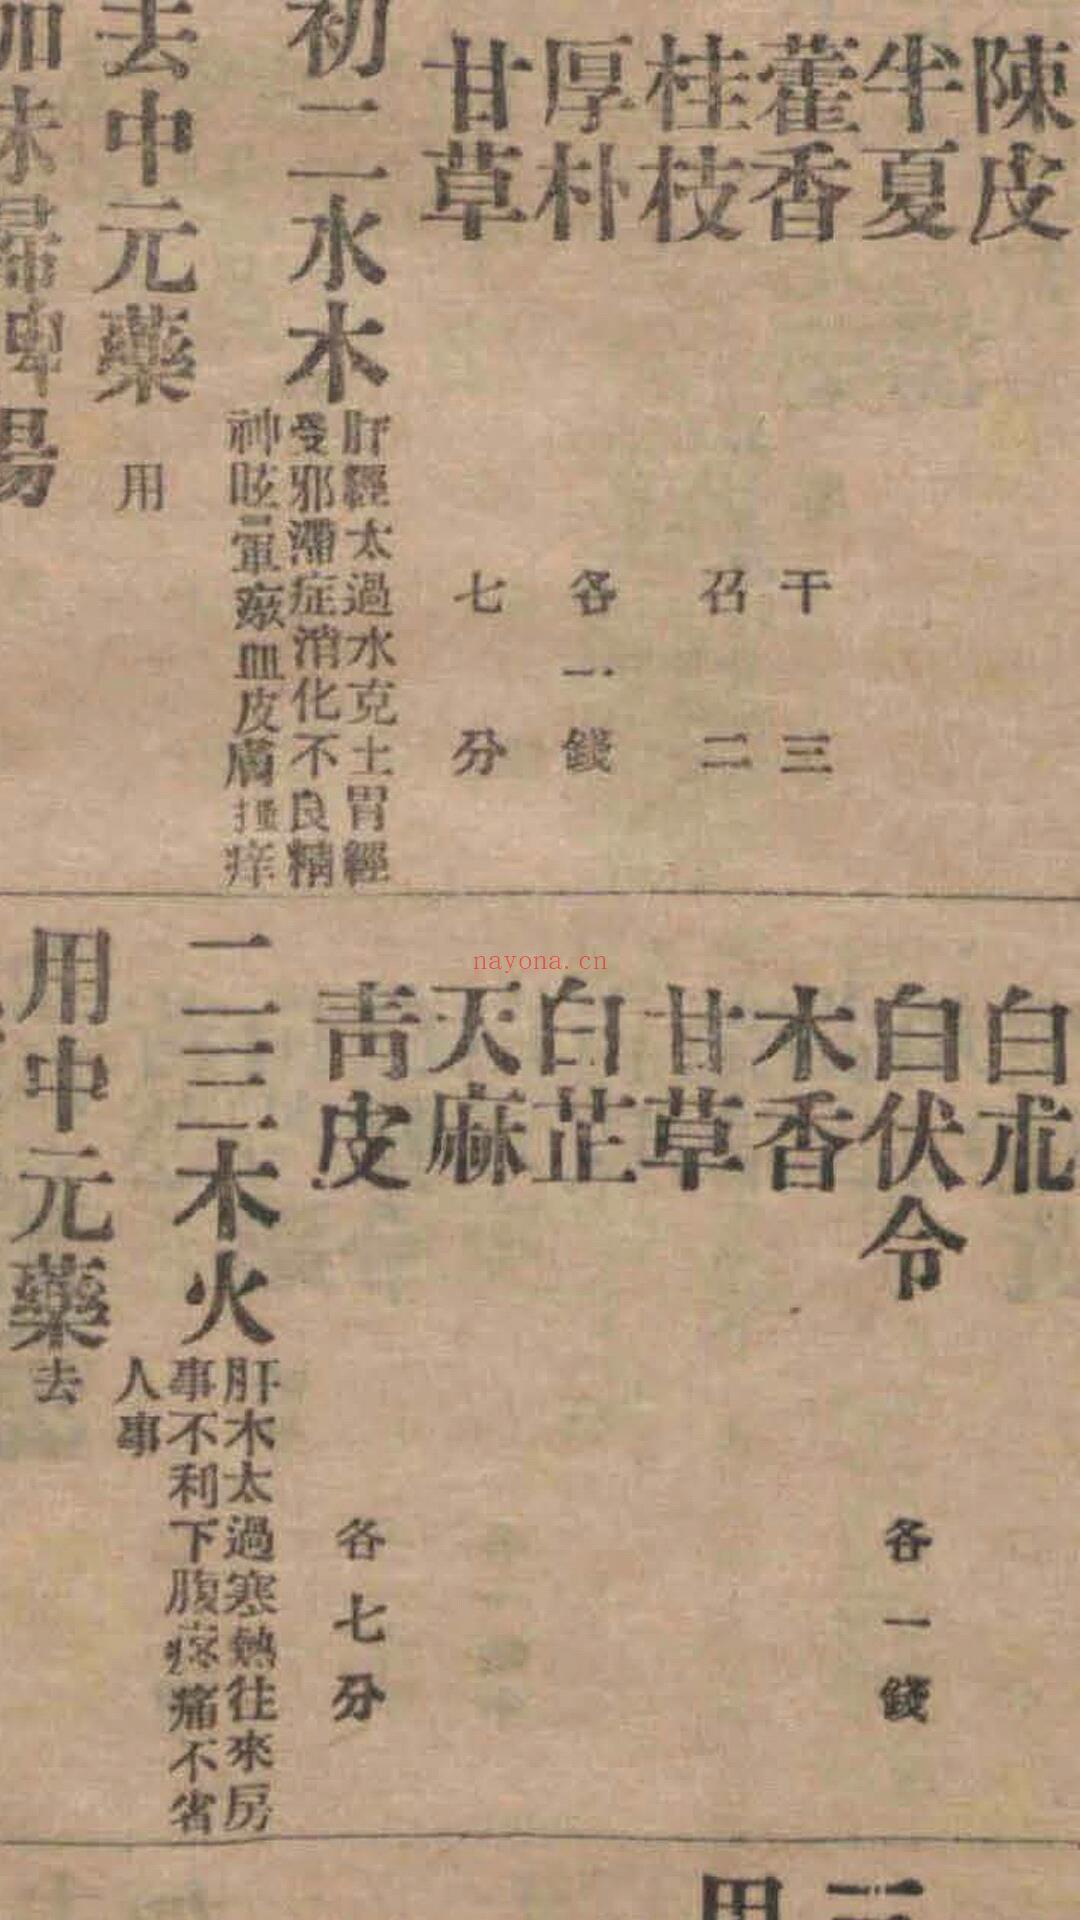 陳皮
半夏
藿香 干三
桂枝 召二
厚朴 各一錢
甘草 七分
初二水木
肝經太過水克土胃經
受邪滯症消化不良精
神眩暈 血皮膚搔痒
去中元藥 用
加味歸脾湯
白朮
白伏令 各一錢
木香
甘草
白芷
天麻
靑皮 各七分
二三木火
肝木太過寒熱往來房
事不利下腹疼痛不省
人事
用中元藥去
nayona.cn